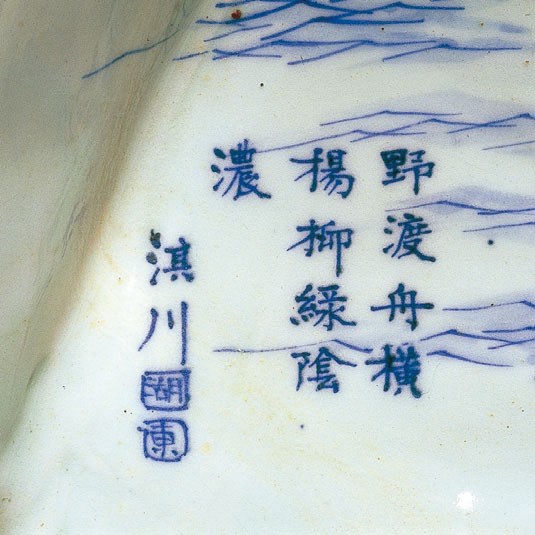 野渡舟橫
楊柳綠陰
濃
淇川
湖
東